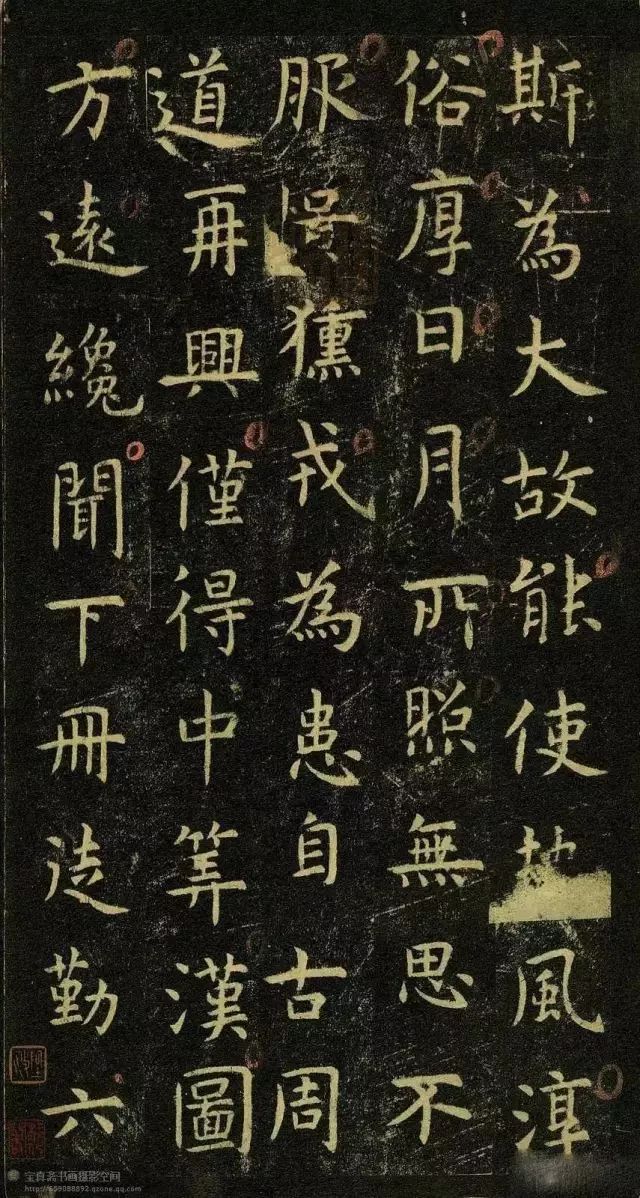 斯為大故能使風淳
俗厚日月所照無思不
服獯戎為患自古周
道再興僅得中筭漢圖
方遠纔聞下冊徒勤六
宝真斋书画摄影空间
http://659088892.qzone.qq.com/